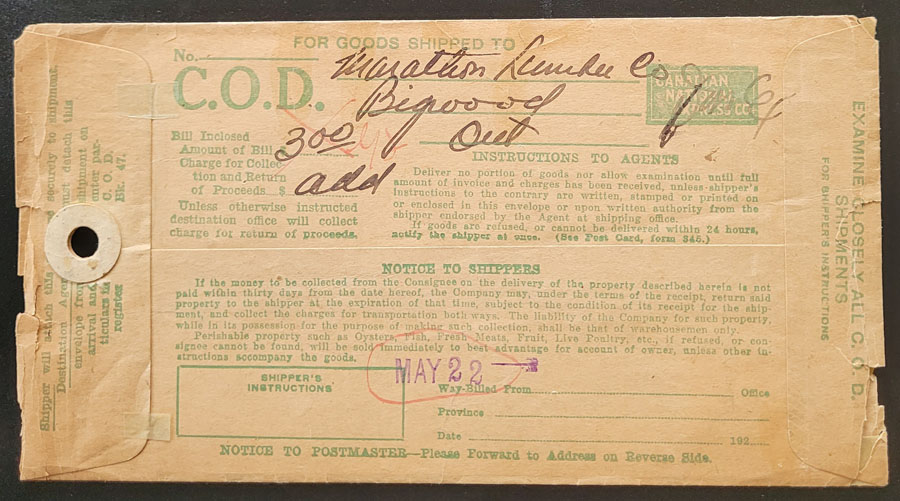 FOR GOODS SHIPPED TO
No.
Marathon Lumber Co
C.O.D.
Bigwood
Ont
CANADIAN
NATIONAL
EXPRESS CO
Bill Inclosed
Amount of Bill $
300
Charge for Collec-
tion and Return
of Proceeds $
add
Unless otherwise instructed
destination office will collect
charge for return of proceeds.
INSTRUCTIONS TO AGENTS
Deliver no portion of goods nor allow examination until full
amount of invoice and charges has been received, unless shipper's
instructions to the contrary are written, stamped or printed on
or enclosed in this envelope or upon written authority from the
shipper endorsed by the Agent at shipping office.
If goods are refused, or cannot be delivered within 24 hours,
notify the shipper at once. (See Post Card, form 846.)
NOTICE TO SHIPPERS
If the money to be collected from the Consignee on the delivery of the property described herein is not
paid within thirty days from the date hereof, the Company may, under the terms of the receipt, return said
property to the shipper at the expiration of that time, subject to the condition of its receipt for the ship-
ment, and collect the charges for transportation both ways. The liability of the Company for such property,
while in its possession for the purpose of making such collection, shall be that of warehousemen only.
Perishable property such as Oysters, Fish, Fresh Meats, Fruit, Live Poultry, etc., if refused, or con-
signee cannot be found, will be sold immediately to best advantage for account of owner, unless other in-
structions accompany the goods.
MAY 22
SHIPPER'S
INSTRUCTIONS
Way-Billed From Office
Province
Date 192
NOTICE TO POSTMASTER—Please Forward to Address on Reverse Side.
Shipper will attach this securely to shipment.
Destination Agent must detach this
envelope from shipment on
arrival and enter par-
ticulars in C. O. D.
register Bk. 47.
EXAMINE CLOSELY ALL C. O. D.
SHIPMENTS
FOR SHIPPER'S INSTRUCTIONS